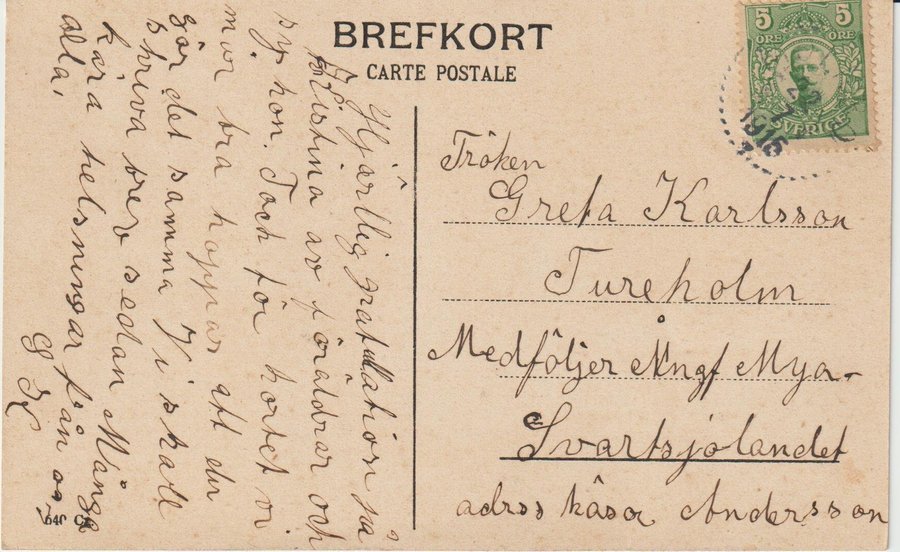 BREFKORT
CARTE POSTALE
5 5
ÖRE ÖRE
SVERIGE
1916
Hjärtlig gratulation på
Kristina av föräldrar och
syskon. Tack för kortet vi
mor bra hoppas att du
gör det samma Vi skall
skriva brev sedan Många
kära helsningar från oss
alla,
G K
Fröken
Greta Karlsson
Tureholm
Medföljer Ångf Mya-
Svartsjölandet
adrss kåsör Andersson